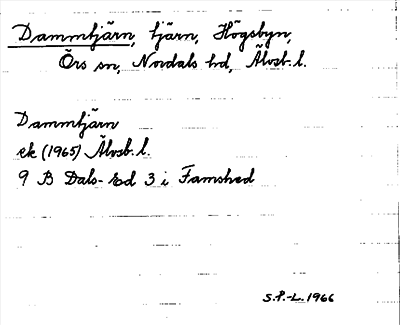 Dammtjärn, tjärn, Högsbyn,
Örs sn, Nordals hd, Älvsb. l.
Dammtjärn
ek (1965) Älvsb. l.
9 B Dals-Ed 3 i Famshed
S.P.-L. 1966